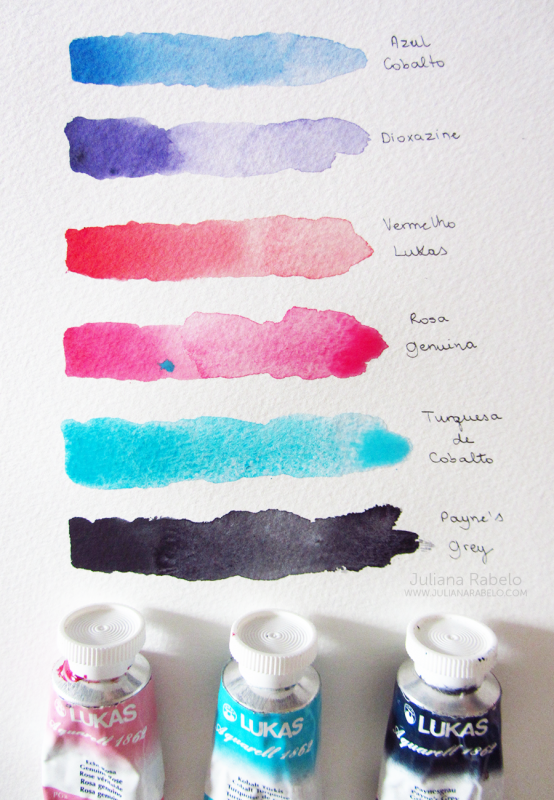 Azul
Cobalto
Dioxazine
Vermelho
Lukas
Rosa
Genuina
Turquesa
de
Cobalto
Payne's
Grey
Juliana Rabelo
WWW.JULIANARABELO.COM
LUKAS
Aquarell 1862
Rosa genuina
LUKAS
Aquarell 1862
LUKAS
Aquarell 1862
Payne's Grey